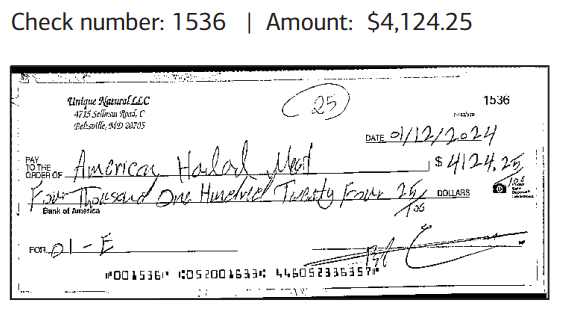 Check number: 1536 | Amount: $4,124.25
Unique Natural LLC
4715 Sellman Road, C
Beltsville, MD 20705
25
1536
DATE 01/12/2024
PAY TO THE ORDER OF American Halal Meat $ 4124.25/100
Four Thousand One Hundred Twenty Four 25/100 DOLLARS
Bank of America
FOR 01-E
⑈001536⑈ ⑆052001633⑆ 446052336357⑈